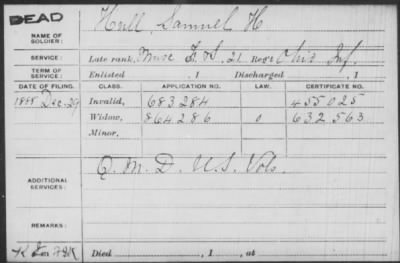 DEAD
NAME OF SOLDIER: Hull, Samuel H
SERVICE: Late rank, Musc F. & S. 21 Reg't Ohio Inf.
TERM OF SERVICE: Enlisted , 1 Discharged , 1
DATE OF FILING. CLASS. APPLICATION NO. LAW. CERTIFICATE NO.
1888 Dec. 29 Invalid, 683284 455025
Widow, 864286 0 632563
Minor,
ADDITIONAL SERVICES: Q. M. D. U.S. Vols.
REMARKS:
Died , 1 , at